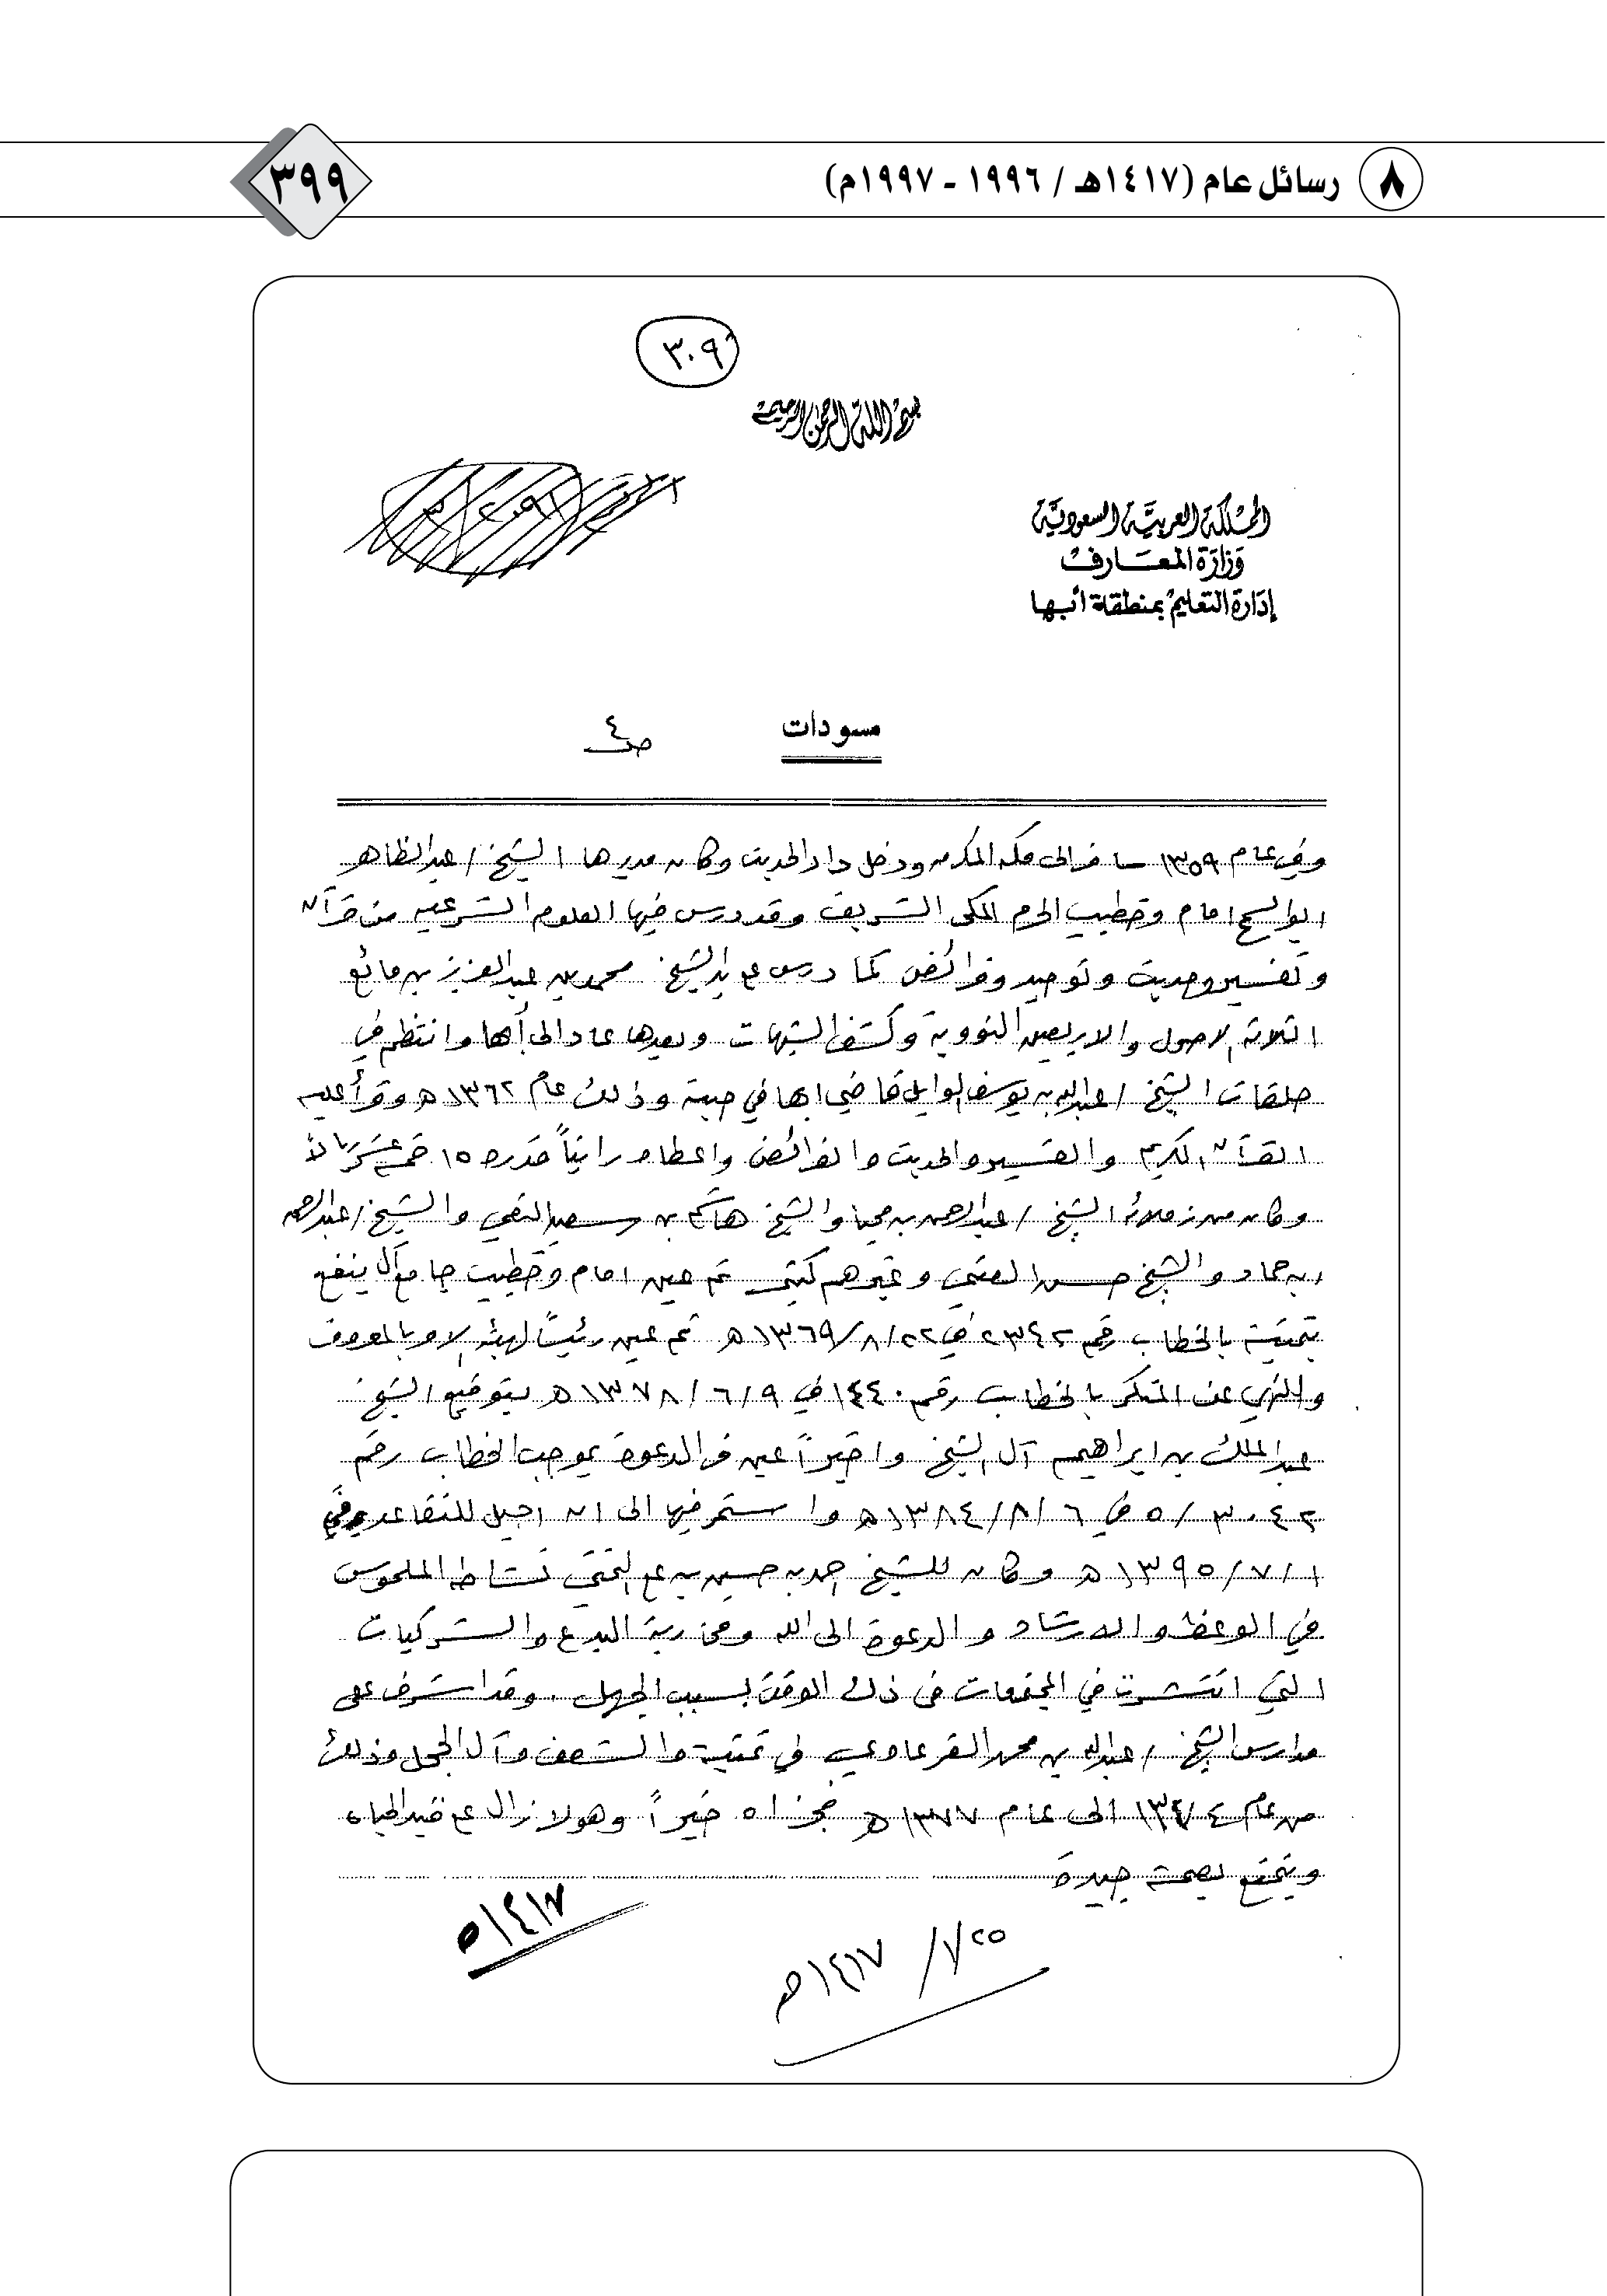 ٨ رسائل عام (١٤١٧هـ / ١٩٩٦ - ١٩٩٧م)
٣٩٩
٣٠٩
بسم الله الرحمن الرحيم
المملكة العربية السعودية
وزارة المعارف
إدارة التعليم بمنطقة أبها
مسودات
ص٤
وفي عام ١٣٥٩ سافر الى مكه المكرمه ودخل دار الحديث وكان مديرها الشيخ / عبدالظاهر
ابو السمح امام وخطيب الحرم المكي الشريف وقد درس فيها العلوم الشرعيه من قرآن
وتفسير وحديث وتوحيد وفرائض كما درس على يد الشيخ محمد بن عبدالعزيز بن مانع
الثلاثة الاصول والاربعين النووية وكشف الشبهات وبعدها عاد الى أبها وانتظم في
حلقات الشيخ / عبدالله بن يوسف الوابل قاضي ابها في حينه وذلك عام ١٣٦٢هـ وقرأ عليه
القرآن الكريم والتفسير والحديث والفرائض واعطاه راتباً قدره ١٥ خمسة عشر ريالاً
وكان من زملائه الشيخ / عبدالرحمن بن محيا والشيخ هاشم بن سعيد النعمي والشيخ / عبدالرحمن
بن حماد والشيخ حسن العتمي وغيرهم كثير ثم عين امام وخطيب جامع آل ينفع
بتمنية بالخطاب رقم ٢٣٤٢ في ٢٢/٨/١٣٦٩هـ ثم عين رئيساً لهيئة الامر بالمعروف
والنهي عن المنكر بالخطاب رقم ١٤٤٠ في ٩/٦/١٣٧٨هـ بتوقيع الشيخ
عبدالملك بن ابراهيم آل الشيخ واخيراً عين في الدعوة بموجب الخطاب رقم
٣٠٤٢/٥ في ٦/٨/١٣٨٤هـ واستمر فيها الى ان احيل للتقاعد في
١/٧/١٣٩٥هـ وكان للشيخ احمد بن حسين بن علي نشاطه الملموس
في الوعظ والارشاد والدعوة الى الله ومحاربة البدع والشركيات
التي انتشرت في المجتمعات في ذلك الوقت بسبب الجهل . وقد اشرف على
مدارس الشيخ / عبدالله بن محمد القرعاوي في تمنية والشعف وآل الجحل وذلك
من عام ١٣٧٤ الى عام ١٣٧٧هـ فجزاه خيراً وهو لا زال على قيد الحياه
ويتمتع بصحة جيدة
١٤١٧ه
٧٢٥ / ١٤١٧هـ